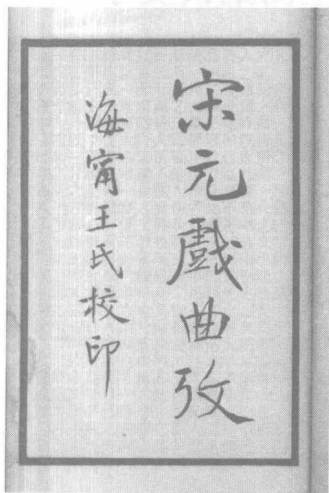 宋元戲曲攷
海甯王氏校印